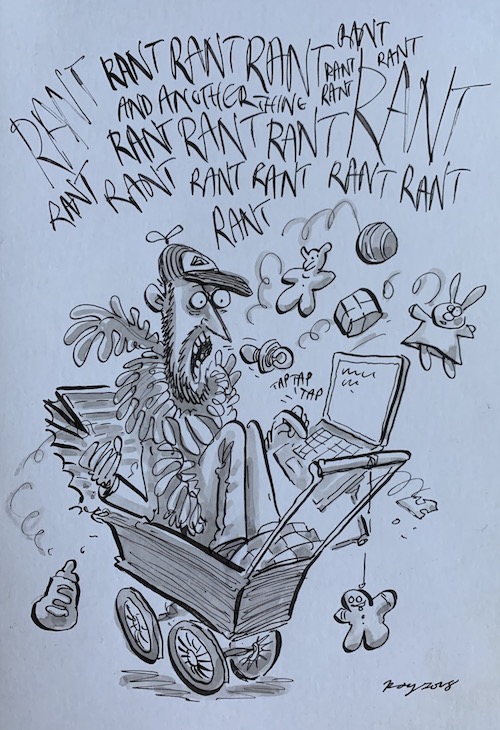 RANT
RANT RANT RANT RANT RANT
RANT
AND ANOTHER THING RANT RANT
RANT RANT RANT RANT
RANT RANT RANT RANT RANT RANT
RANT
TAP TAP
TAP